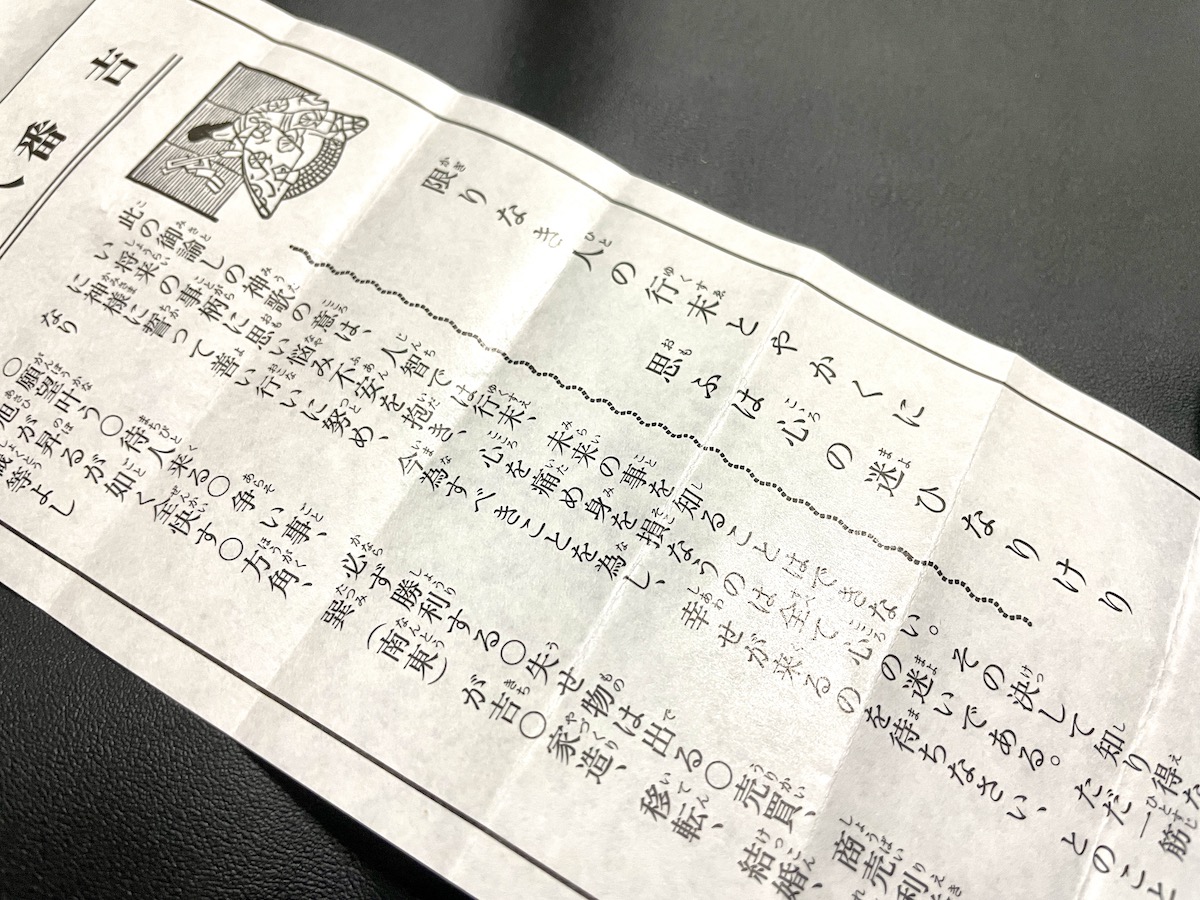 吉
番
限りなき人の行末とやかくに
思ふは心の迷ひなりけり
此の御諭しの神歌の意は、人智では行末、未来の事を知ることはできない。その決して知り得な
い将来の事柄に思い悩み不安を抱き、心を痛め身を損なうのは全て心の迷いである。ただ一筋
に神様に誓って善い行いに努め、今為すべきことを為し、幸せが来るのを待ちなさい、とのこと
なり
○願望叶う○待人来る○争い事、必ず勝利する○失せ物は出る○売買、商売利
旭が昇るが如く全快す○方角、巽(南東)が吉○家造、移転、結婚、
職等よし